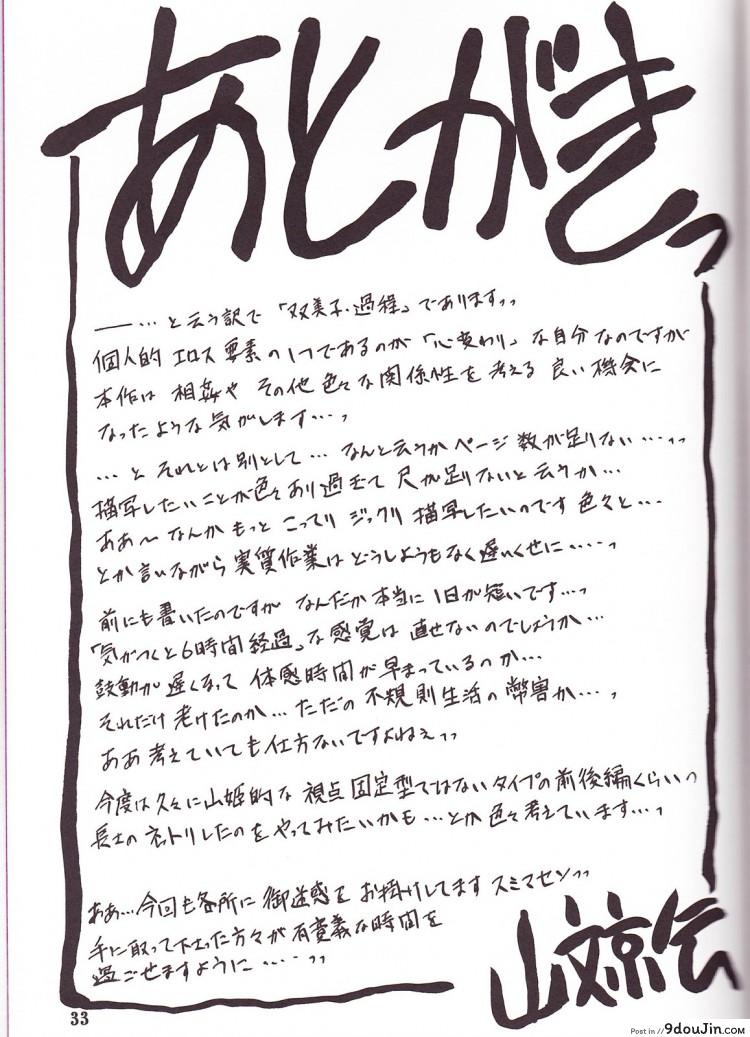 あとがきっ
——…と云う訳で「双美子・過程」でありますッッ
個人的エロス要素の1つであるのが「心変わり」な自分なのですが
本作は相姦やその他色々な関係性を考える良い機会に
なったような気がします…っ
…とそれとは別として…なんと云うかページ数が足りない…ッッ
描写したいことが色々あり過ぎて尺が足りないと云うか…
ああ〜なんかもっとこってりジックリ描写したいのです色々と…
とか言いながら実質作業はどうしようもなく遅いくせに……っ
前にも書いたのですがなんだか本当に1日が短いです…っ
「気がつくと6時間経過」な感覚は直せないのでしょうか…
鼓動が遅くなって体感時間が早まっているのか…
それだけ老けたのか…ただの不規則生活の弊害か…っ
ああ考えていても仕方ないですよねぇッッ
今度は久々に山姫的な視点固定型ではないタイプの前後編くらいっ
長さのネットリしたのをやってみたいかも…とか色々考えています…っ
ああ…今回も各所に御迷惑をお掛けしてますスミマセンッッ
手に取って下さった方々が有意義な時間を
過ごせますように……ッッ
山文京伝
33
Post in // 9douJin.com